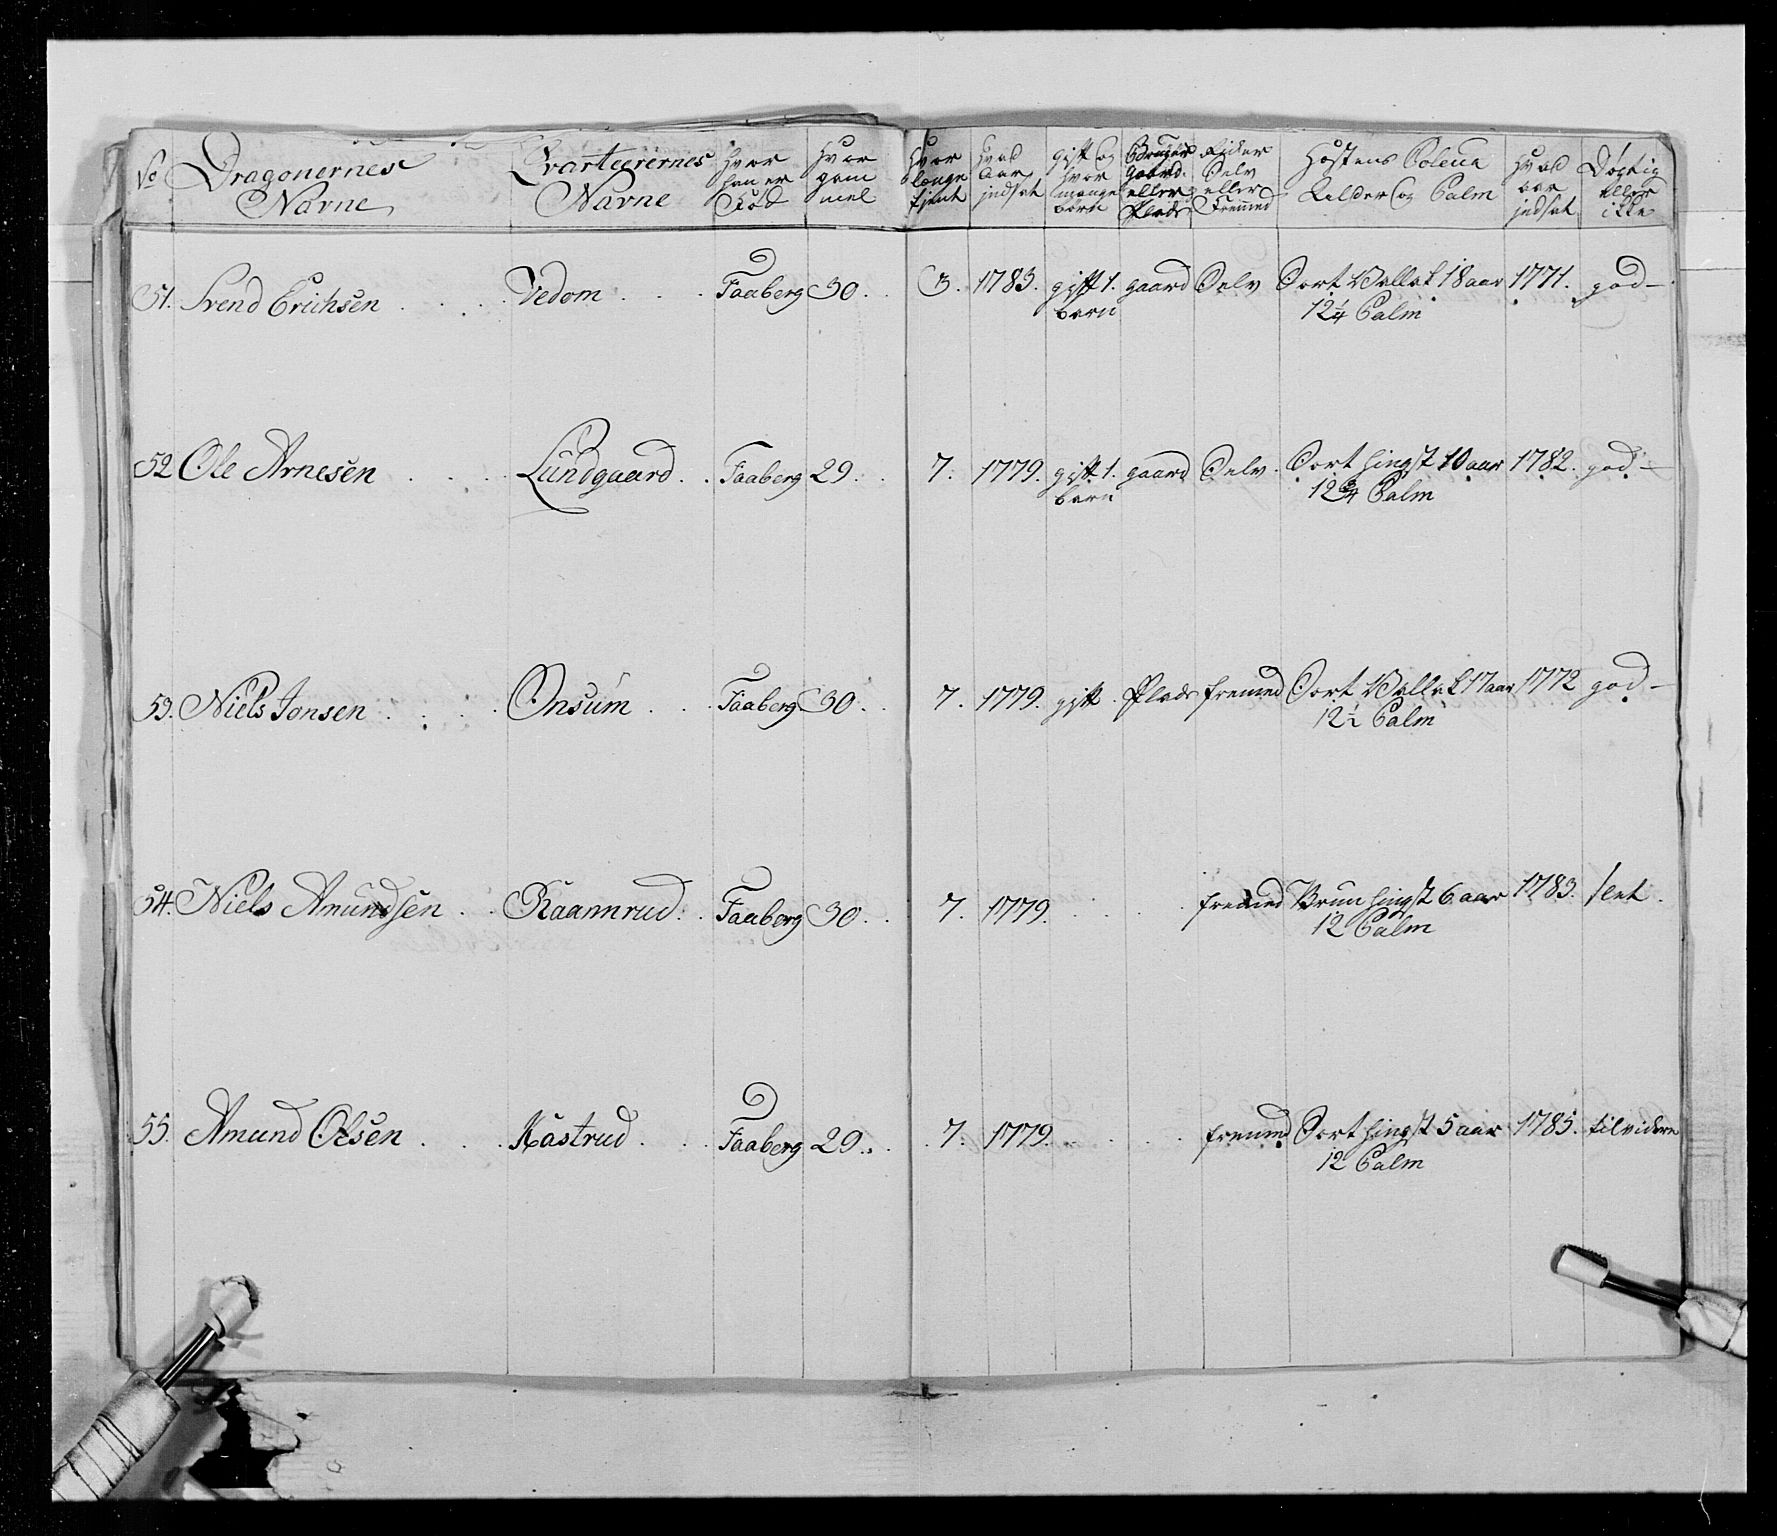 No Dragonernes Navne Qvarteerernes Navne Hvor han er Fød Hvor gam mel Hvor længe tient Hvad Aar indsat gift og hvor mange børn Bruger gaard eller Plads Riider Selv eller Fremmed Hæstens Coleur Alder og Palm Hvad aar indsat Dygtig eller ikke
51. Svend Erichsen Vedom Faaberg 30. 3. 1783. gift 1. gaard Selv Sort Vallak 18 aar 1771. god
barn 12 1/4 Palm
52 Ole Arnesen Lundgaard Faaberg 29. 7. 1779. gift 1. gaard Selv Sort hingst 10 aar 1782. god
barn 12 3/4 Palm
53. Niels Jonsen Onsum Faaberg 30. 7. 1779. gift Plads fremed Sort Vallak 17 aar 1772 god
12 1/2 Palm
54. Niels Amundsen Raamrud Faaberg 30. 7. 1779. fremed Brun hingst 6 aar 1783. slet.
12 Palm
55. Amund Olsen Kastrud Faaberg 29. 7. 1779. fremed Sort hingst 5 aar 1785. tilvidere
12 Palm